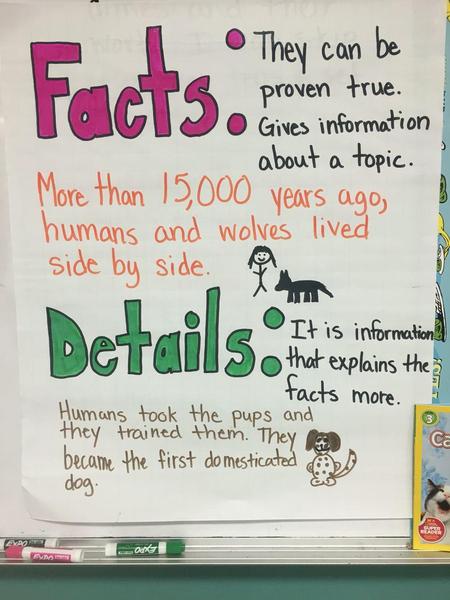 Facts: They can be
proven true.
Gives information
about a topic.
More than 15,000 years ago,
humans and wolves lived
side by side.
Details: It is information
that explains the
facts more.
Humans took the pups and
they trained them. They
became the first domesticated
dog.
3
Ca
SUPER
READER
EXPO
EXPO
EXPO